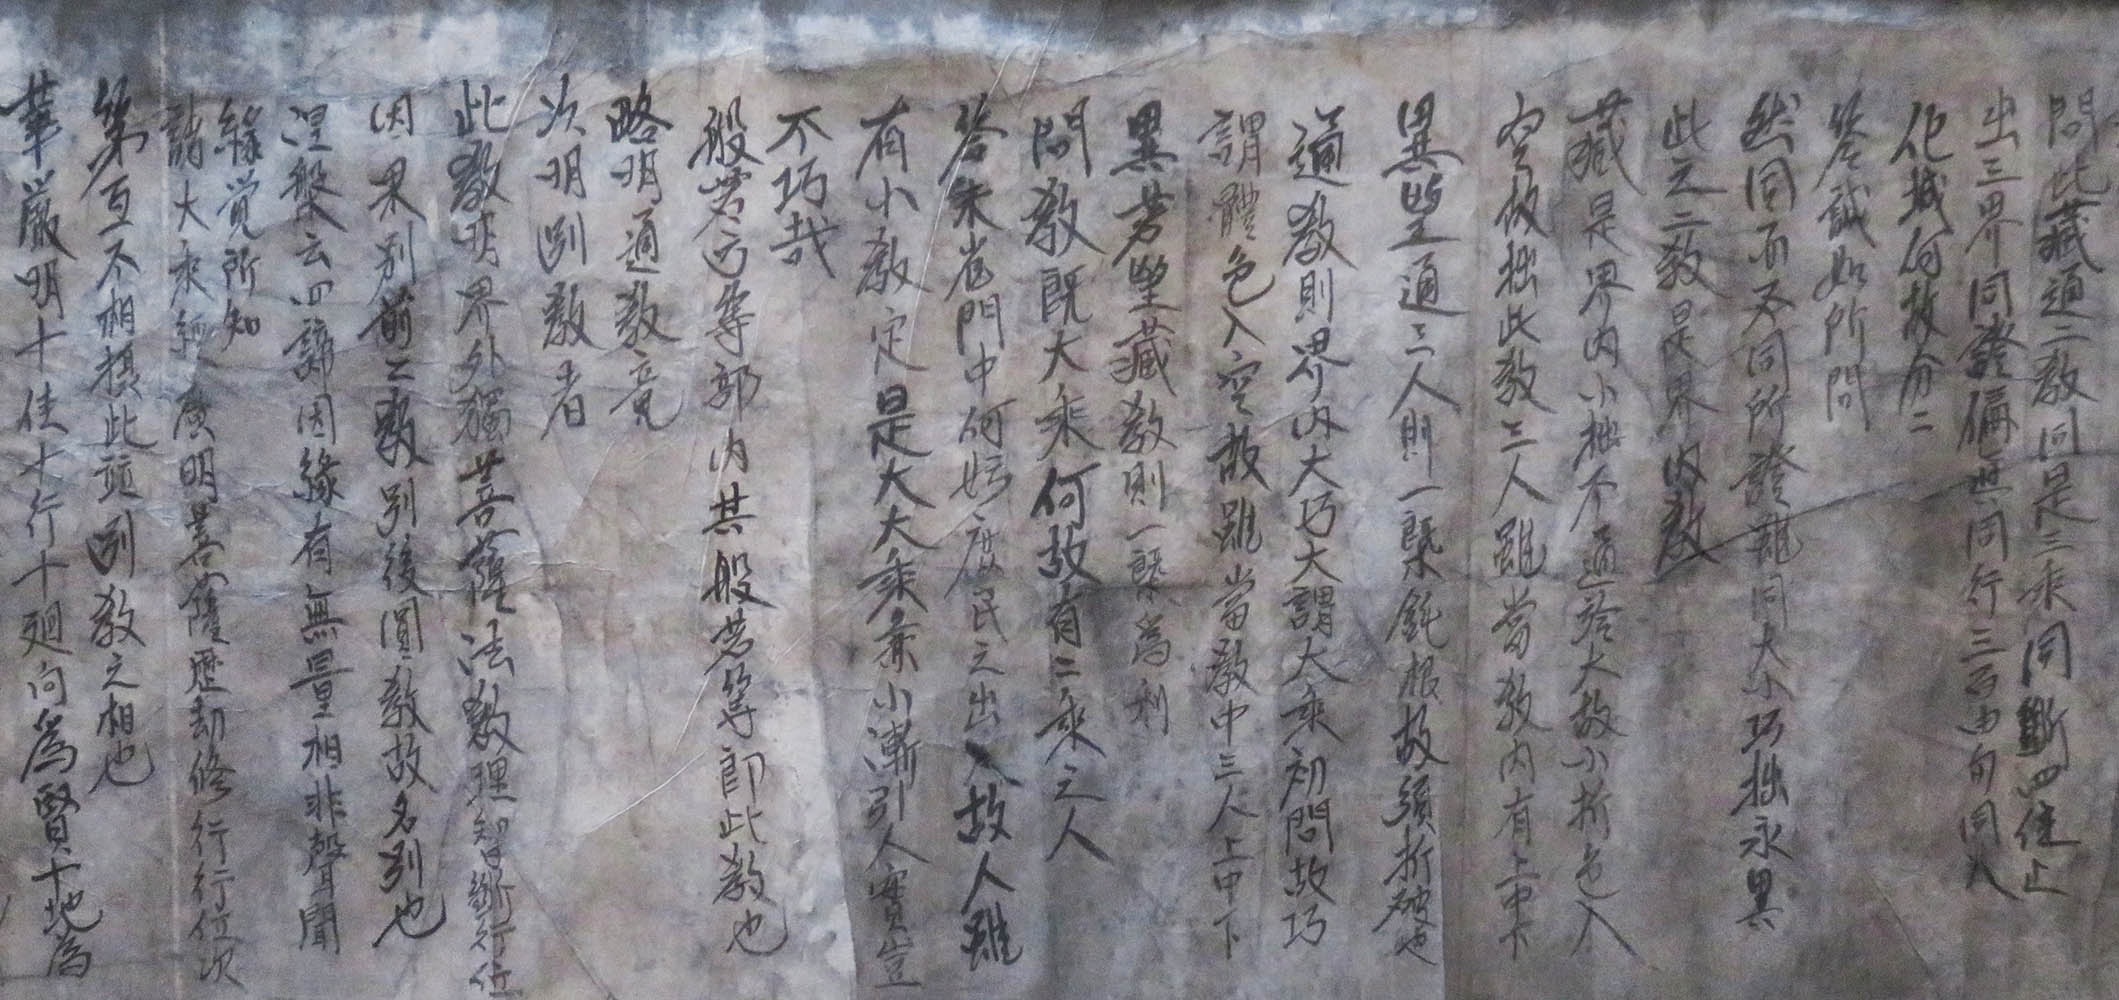 問此藏通二教同是三乘同斷四住止
出三界同證偏真同行三百由旬同入
化城何故分二
答誠如所問
然同而不同所證雖同大小巧拙永異
此之二教是界內教
藏是界內小拙不通於大故小析色入
空故拙此教三人雖當教內有上中下
異望通三人則一概鈍根故須析破也
通教則界內大巧大謂大乘初門故巧
謂體色入空故雖當教中三人上中下
異若望藏教則一概為利
問教既大乘何故有二乘之人
答朱雀門中何妨庶民之出入故人雖
有小教定是大大乘兼小漸引入實豈
不巧哉
般若方等部內共般若等即此教也
略明通教竟
次明別教者
此教明界外獨菩薩法教理智斷行位
因果別前二教別後圓教故名別也
涅槃云四諦因緣有無量相非聲聞
緣覺所知
諸大乘經廣明菩薩歷劫修行行位次
第互不相攝此竝別教之相也
華嚴明十住十行十廻向為賢十地為